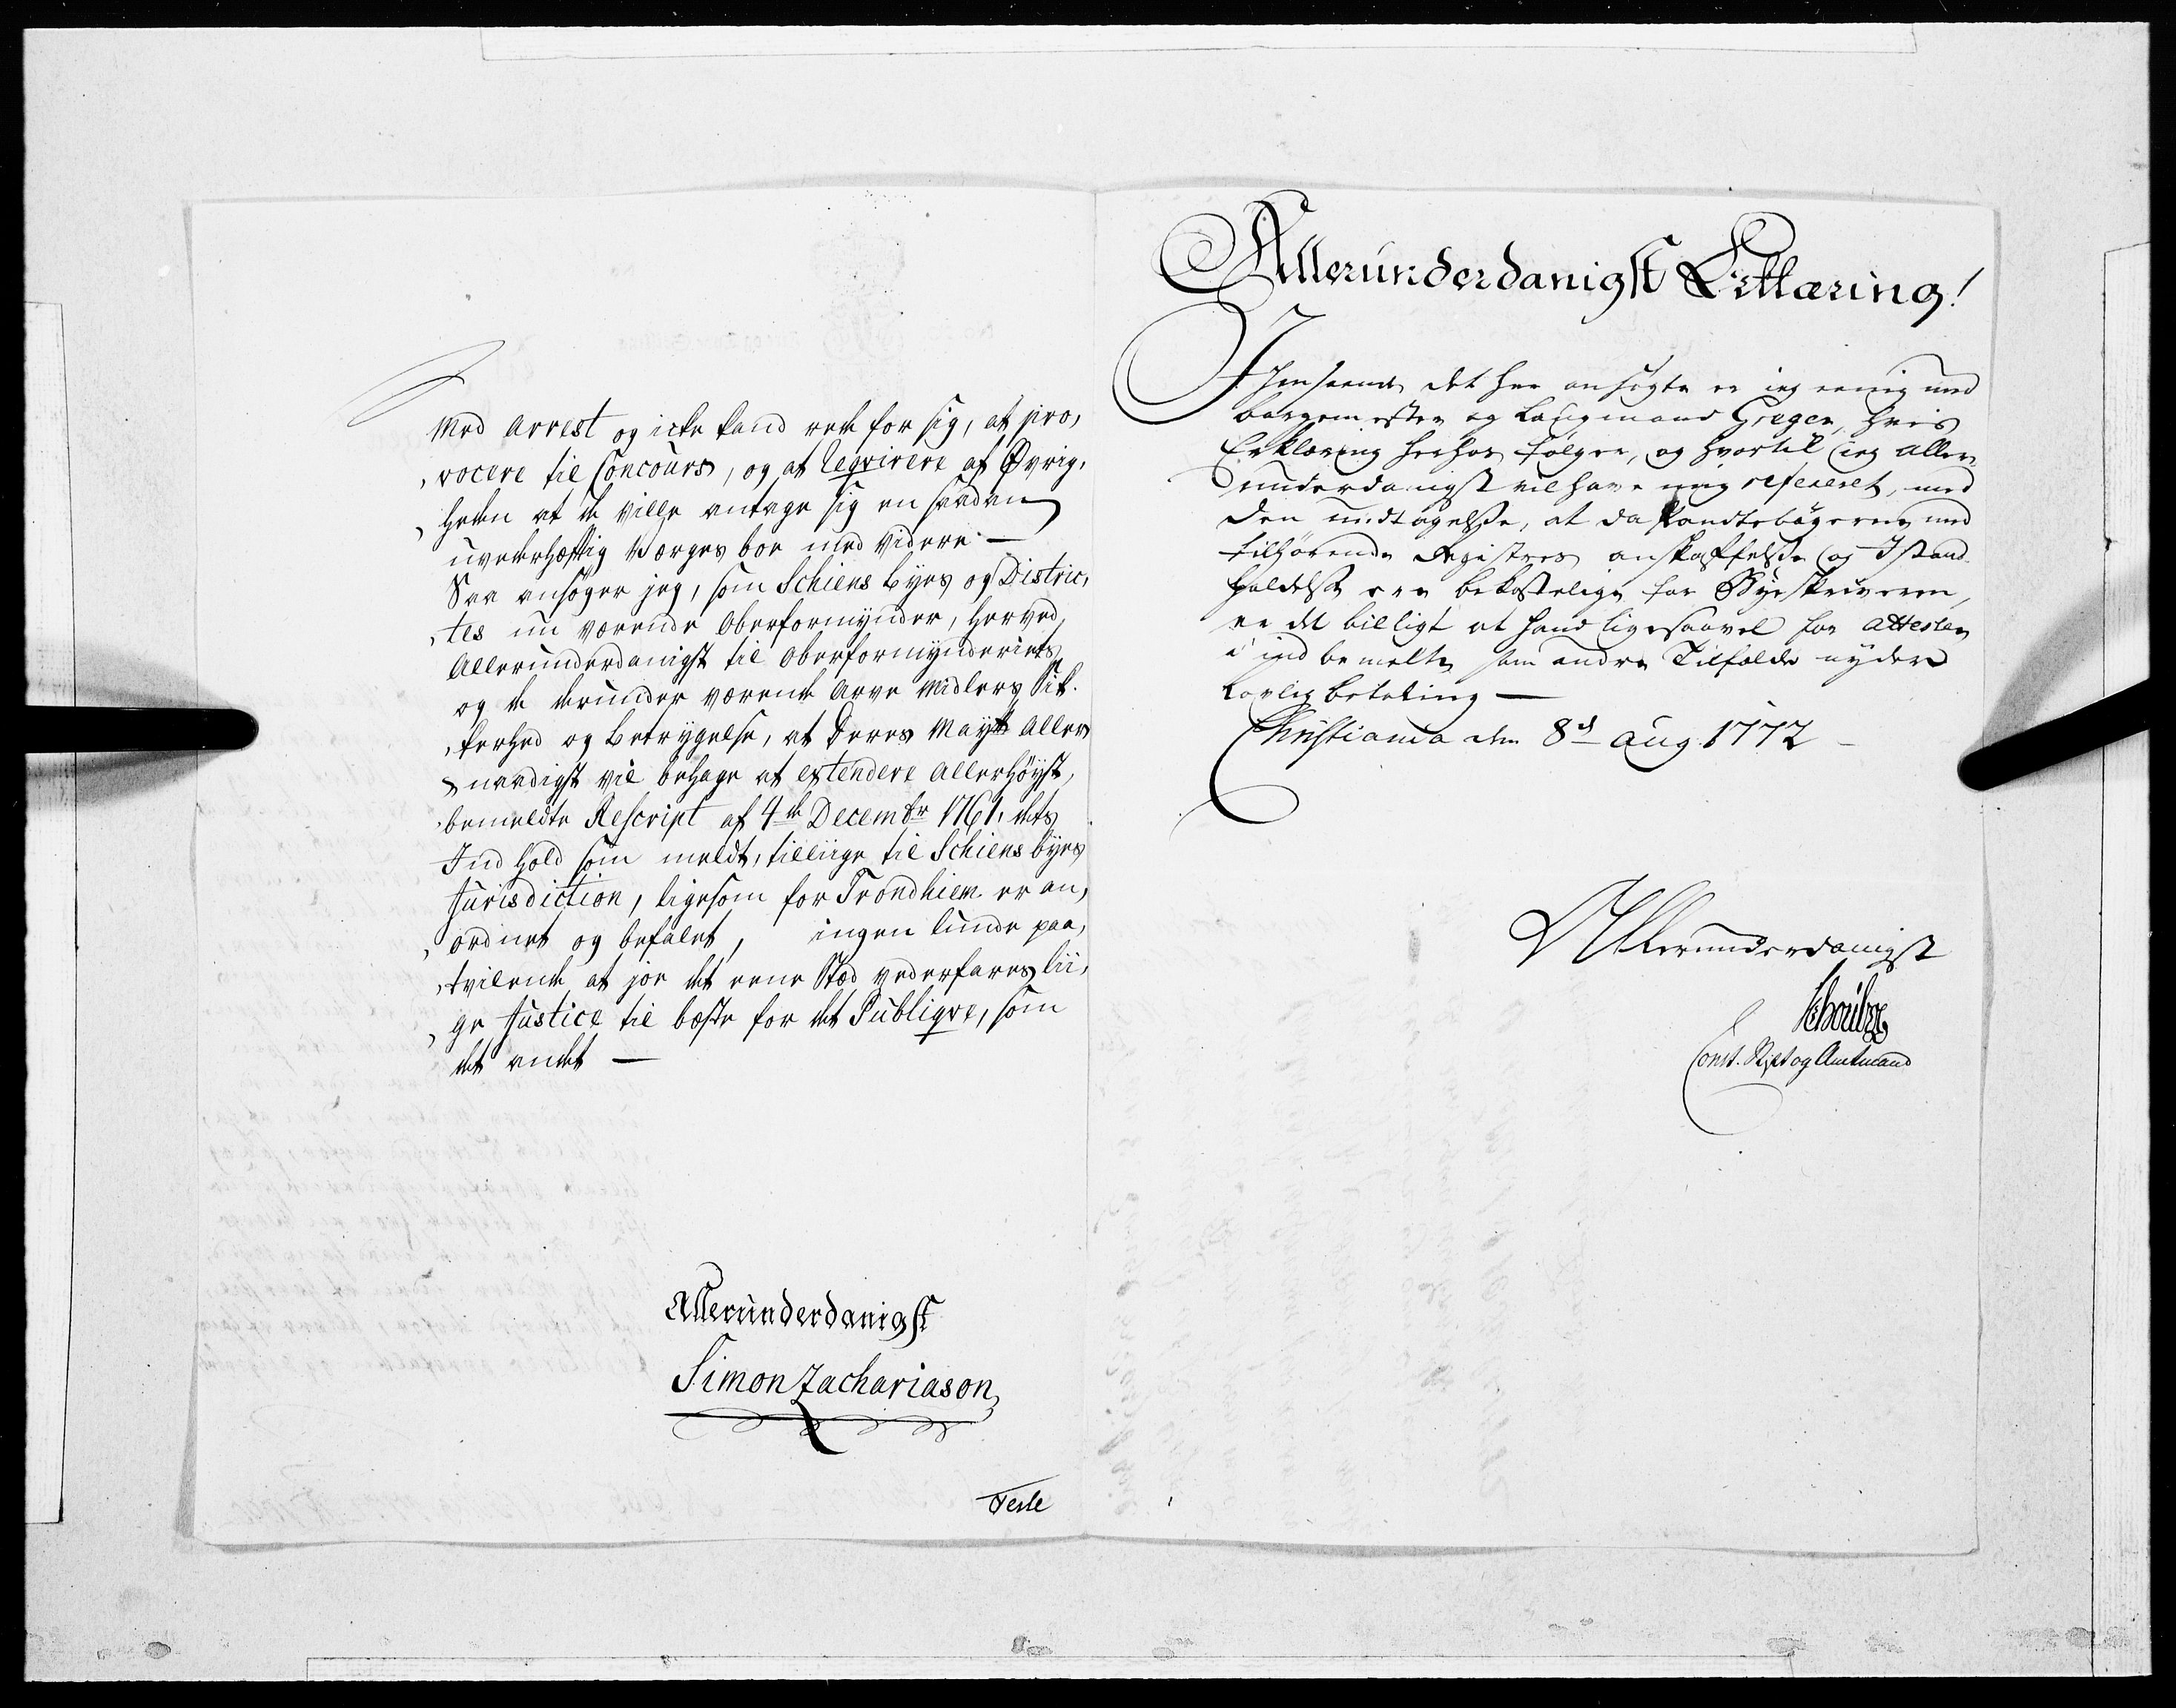 Med Arrest og icke kand rede for sig, at pro,
, vocere til Concours, og at reqvirere af Øvrig,
, heden at de ville antage sig en saadan
uvederhæftig Værges boe med videre. —
Saa ansøger jeg, som Schiens Byes og Distric,
, tes nu værende Oberformynder, herved
Allerunderdanigst til Oberformynderiets
og de derunder værende Arve Midlers Sik.
, kerhed og Betrygelse, at Deres Maytt Aller
naadigst vil behage at extendere Allerhøyst,
bemeldte Rescript af 4de Decembr 1761. dets
Indhold som meldt, tilliige til Schiens byes
Jurisdiction, ligesom for Trondhiem er an,
, ordnet og befalet, ingen lunde paa,
, tvilende at jo det eene Stæd vederfares lii,
, ge Justice til bæste for det Publiqve, som
det andet —
Allerunderdanigst
Simon Zachariason
Vesle
Allerunderdanigst Erklæring!
I henseende det her ansøgte er ieg eenig med
borgemester og Laugmand Gregers, hvis
Erklæring herhos følger, og hvortil ieg aller
underdanigst vil have mig refereret, med
den undtagelsse, at da Pandtebøgernes med
tilhørende Registres anskaffelsse og Istand
holdelsse ere bekostelige for Byeskriveren,
er det billigt at hand ligesaavel for attester
i ind bemelte som andre Tilfælde nyder
Lovlig betaling —
Christiania den 8d Aug 1772 –
Allerunderdanigst
Const. Stift og Amtmand